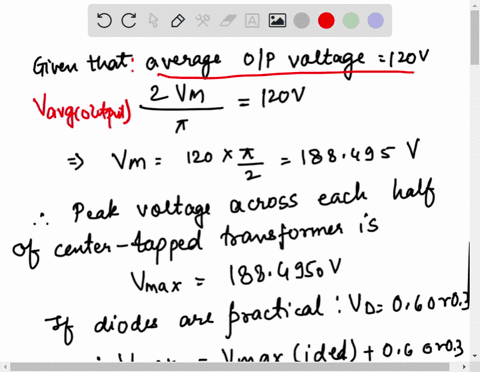 Given that: average O/P voltage = 120V
Vavg(output) 2 Vm / π = 120V
⇒ Vm = 120 × π/2 = 188.495 V
∴ Peak voltage across each half
of center-tapped transformer is
Vmax = 188.4950 V
If diodes are practical : VD = 0.6 or 0.3
= Vmax (ided) + 0.6 or 0.3